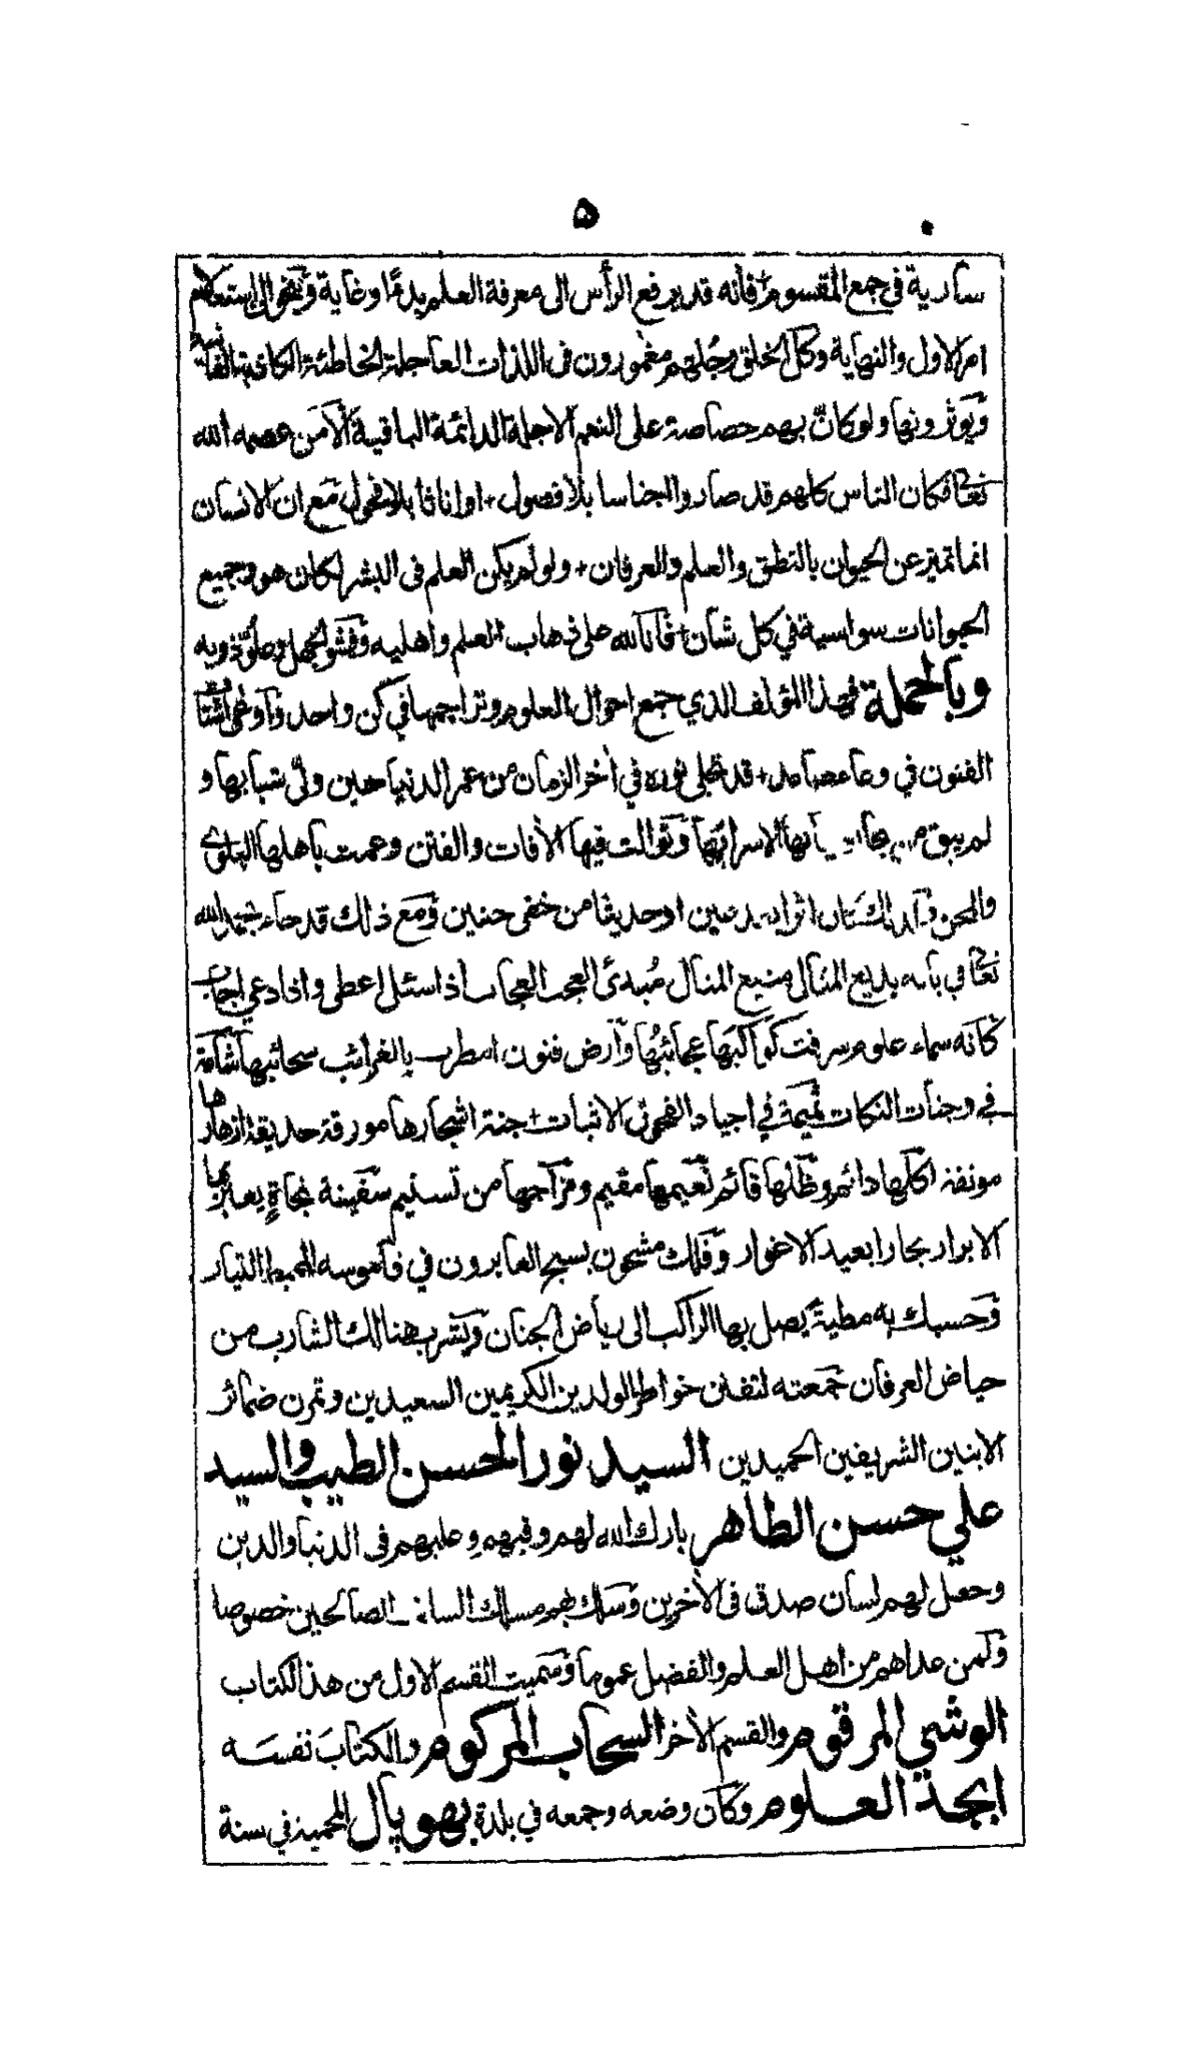 ٥
سارية في جمع المقسوم + فانه قد يرفع الرأس الى معرفة العلم بدءًا وغاية وتنحو الى استعلام
امر الاول والنهاية وكل الخلق وجلهم مغمورون في اللذات العاجلة الخاطئة الكاذبة الفانية
ويوثرونها ولو كان بهم خصاصة على النعم الآجلة الدائمة الباقية الا من عصمه الله
تعالى فكان الناس كلهم قد صاروا اجناسا بلا فصول + او اناثا بلا فحول مع ان الانسان
انما تميز عن الحيوان بالنطق والعلم والعرفان + ولو لم يكن العلم في البشر لكان هو وجميع
الحيوانات سواسية في كل شان + فانا لله على ذهاب العلم واهليه وفشو الجهل وعلو ذويه
وبالجملة فهذا المؤلف الذي جمع احوال العلوم وتراجمها في كن واحد واوعى اشتات
الفنون في وعاء صامد + قد تجلى نوره في آخر الزمان من عمر الدنيا حين ولى شبابها و
لم يبق من الا سرابها وتوالت فيها الآفات والفتن وعمت باهلها البلوى
والمحن اثرا بعد عين او حديثا من خفى حنين ومع ذلك قد جاء بحمد الله
تعالى في بابه بديع المثال منيع المنال مبدئ العجب العجاب اذا سئل اعطى واذا دعي اجاب
كانه سماء علوم سرفت كواكبها عجائبها وارض فنون امطرت بالغرائب سحائبها شامة
في وجنات النكات تميمة في اجياد الفحول الاثبات + جنة اشجارها مورقة حديقة ازهارها
مونقة اكلها دائم وظلها قائم نعيمها مقيم ومزاجها من تسنيم سفينة نجاةٍ يعبر بها
الابرار بحارا بعيد الاغوار وفلك مشحون يسبح العابرون في قاموسه المحيط التيار
وحسبك به مطية يصل بها الراكب الى رياض الجنان ويشرب هنالك الشارب من
حياض العرفان جمعته لتفنن خواطر الولدين الكريمين السعيدين وتمرن ضمائر
الابنين الشريفين الحميدين السيد نور الحسن الطيب والسيد
علي حسن الطاهر بارك الله لهم وفيهم وعليهم في الدنيا والدين
وجعل لهم لسان صدق في الآخرين وسلك بهم مسالك السلف الصالحين خصوصا
ولمن عداهم من اهل العلم والفضل عموما وسميت القسم الاول من هذا الكتاب
الوشي المرقوم والقسم الآخر السحاب المركوم والكتاب نفسه
ابجد العلوم وكان وضعه وجمعه في بلدة بهوپال المحمية في سنة